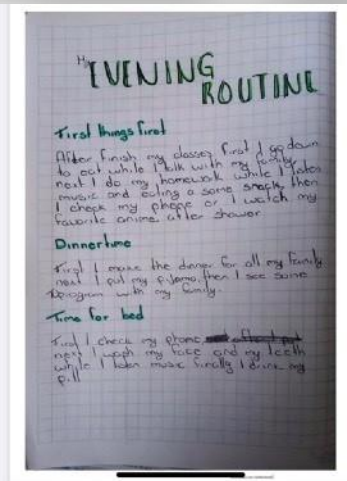 My
EVENING
ROUTINE
First things first
After finish my classes first I go down
to eat while I talk with my family
next I do my homework while I listen
music and eating a some snack, then
I check my phone or I watch my
favorite anime, after shower
Dinnertime
First I make the dinner for all my family
next I put my pijama, then I see some
program with my family.
Time for bed
First I check my phone
next I wash my face and my teeth
while I listen music finally I drink my
pill